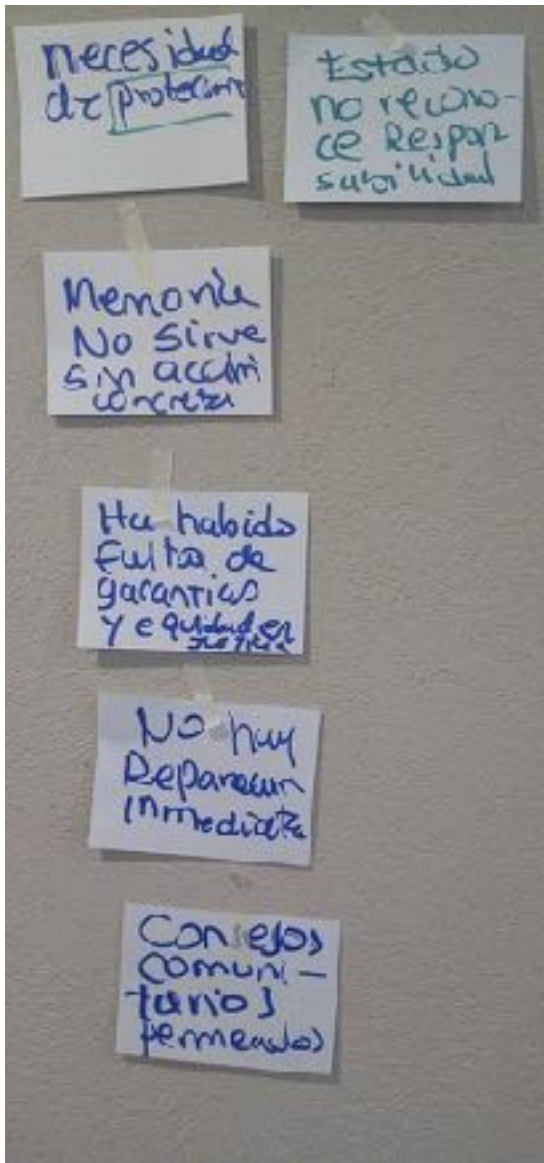 necesidad
de protección
Estado
no recono-
ce Respon
sabilidad
Memoria
No sirve
sin acción
concreta
Ha habido
Falta de
garantias
y equidad en
justicia
No hay
Reparación
inmediata
Consejos
comuni-
tarios
permeados